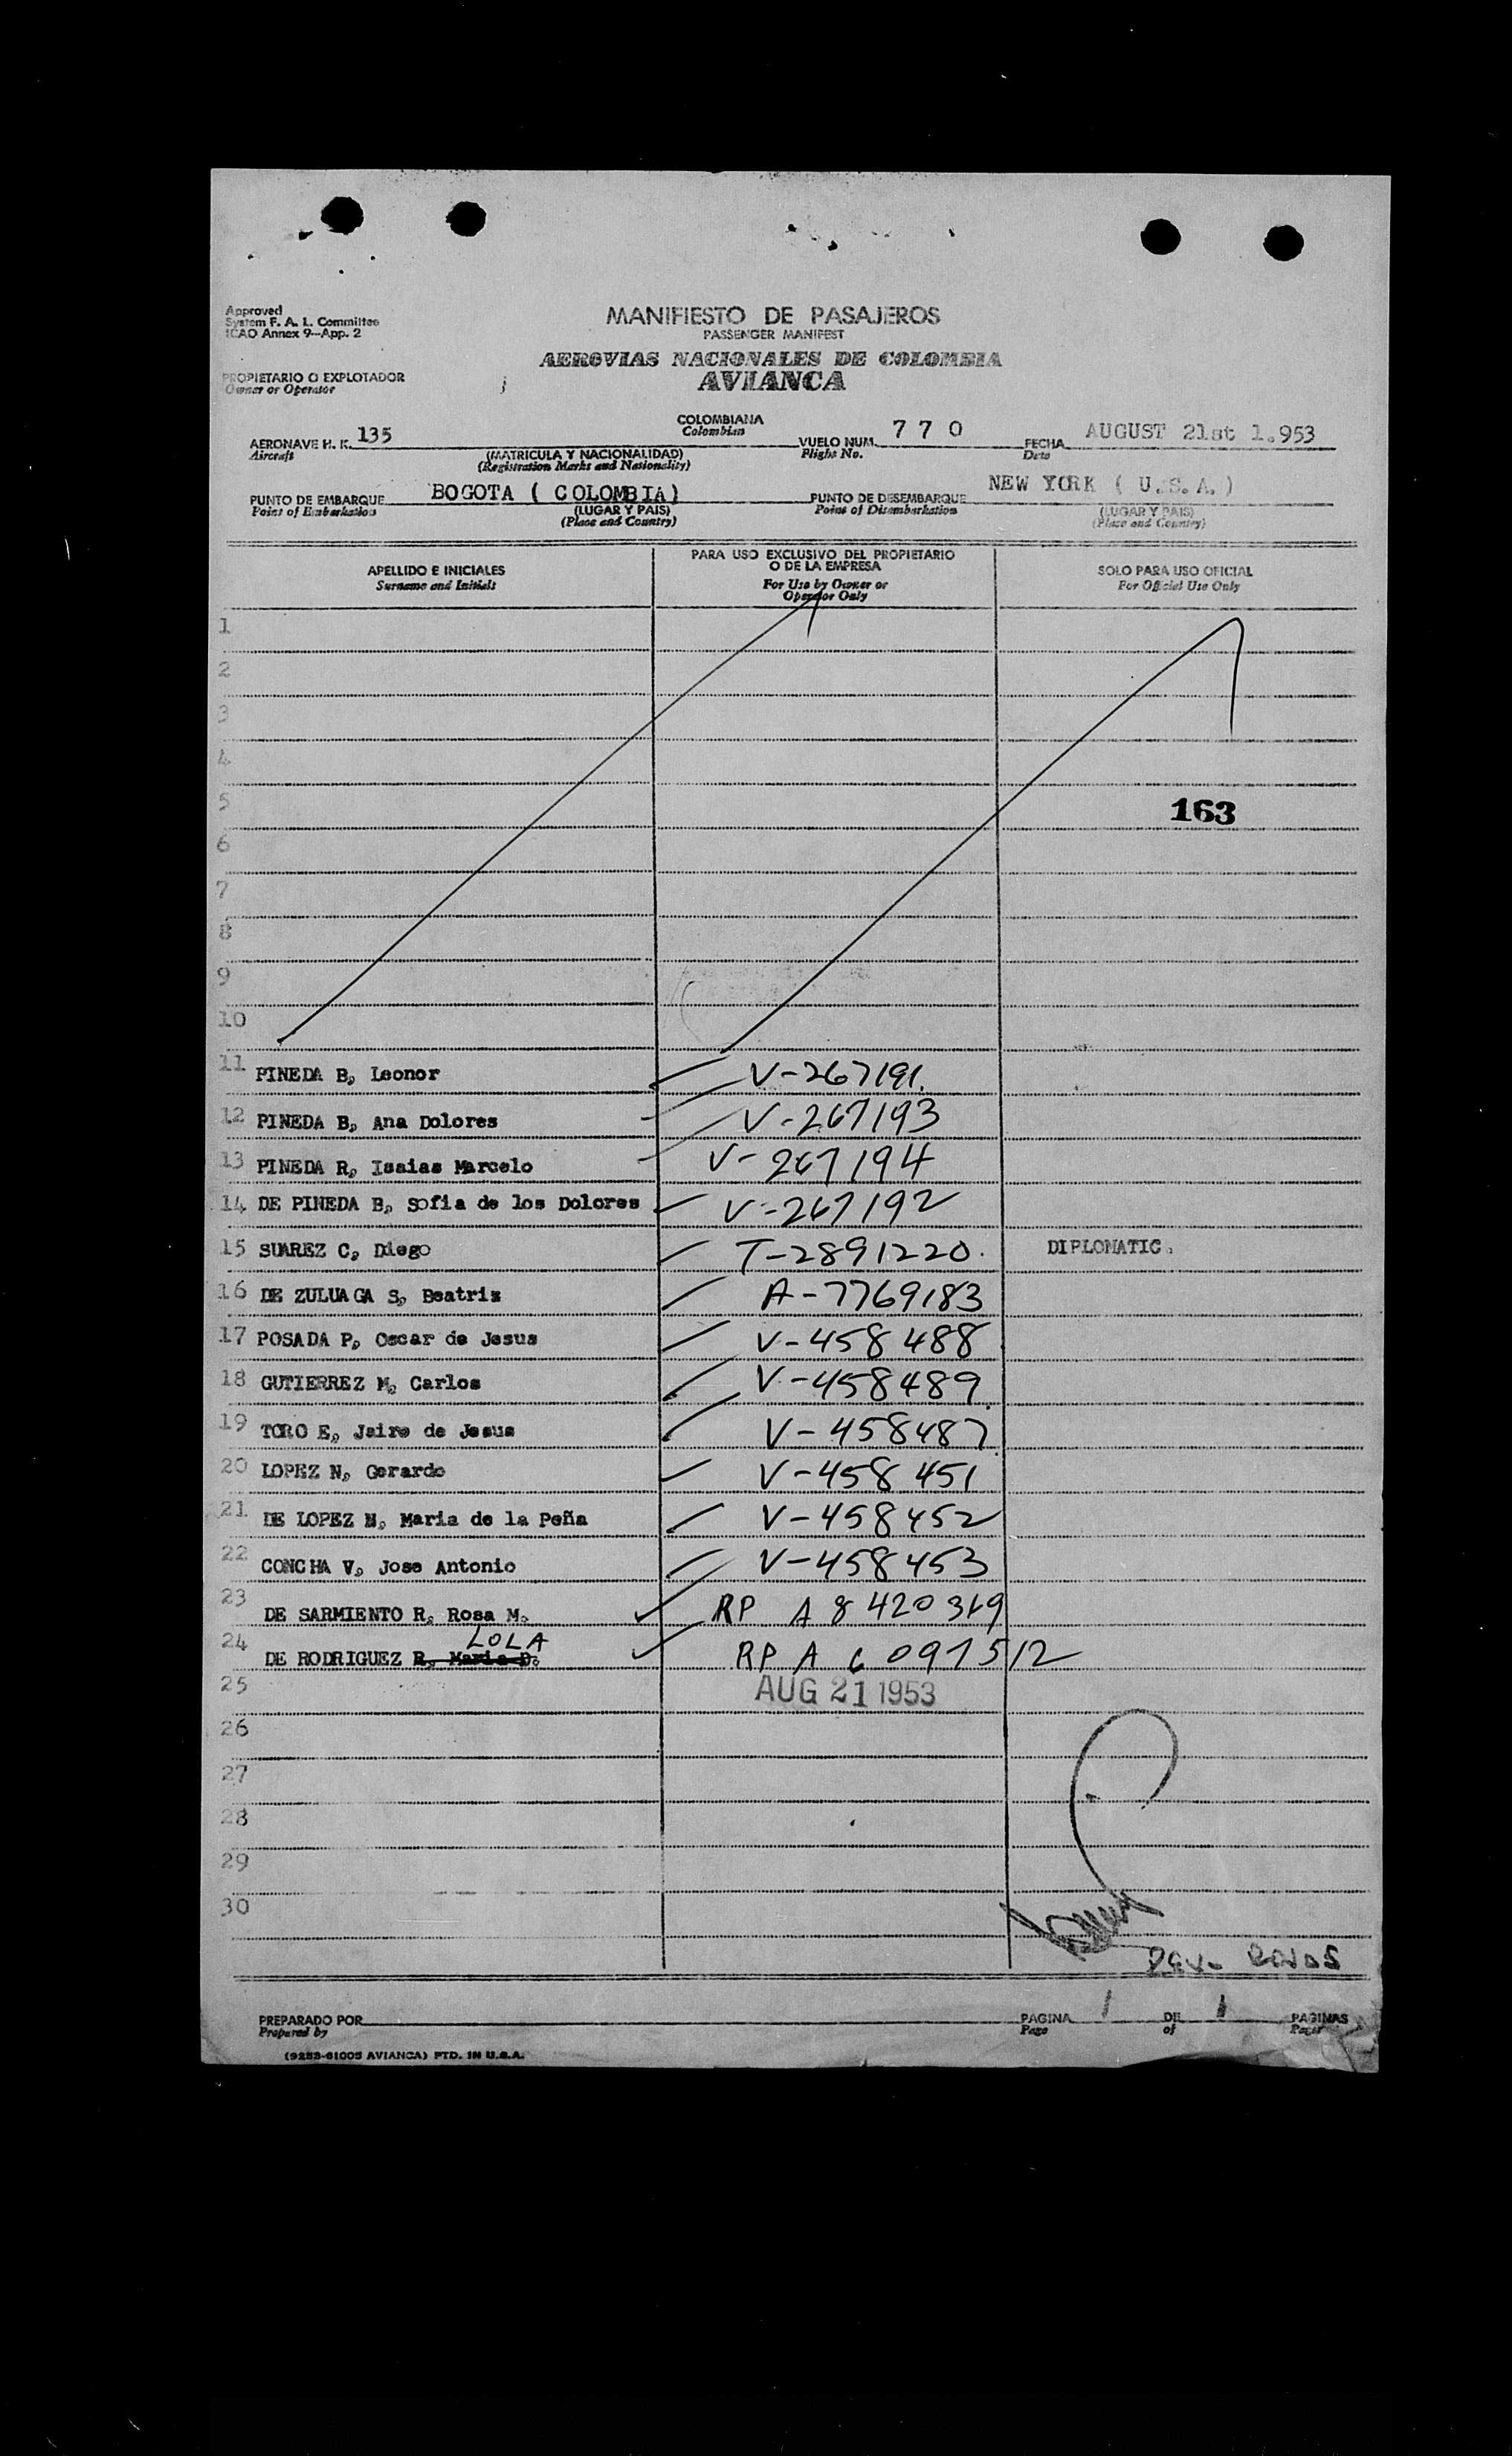 Approved
System F. A. L. Committee
ICAO Annex 9—App. 2
MANIFIESTO DE PASAJEROS
PASSENGER MANIFEST
AEROVIAS NACIONALES DE COLOMBIA
AVIANCA
PROPIETARIO O EXPLOTADOR
Owner or Operator
COLOMBIANA
Colombian
AERONAVE H. K. 135
Aircraft
(MATRICULA Y NACIONALIDAD)
(Registration Marks and Nationality)
VUELO NUM. 7 7 0
Flight No.
FECHA AUGUST 21st 1.953
Date
PUNTO DE EMBARQUE BOGOTA ( COLOMBIA)
Point of Embarkation
(LUGAR Y PAIS)
(Place and Country)
PUNTO DE DESEMBARQUE NEW YORK ( U.S.A.)
Point of Disembarkation
(LUGAR Y PAIS)
(Place and Country)
APELLIDO E INICIALES
Surname and Initials
PARA USO EXCLUSIVO DEL PROPIETARIO
O DE LA EMPRESA
For Use by Owner or
Operator Only
SOLO PARA USO OFICIAL
For Official Use Only
1
2
3
4
5
163
6
7
8
9
10
11 PINEDA B, Leonor V-267191.
12 PINEDA B, Ana Dolores V-267193
13 PINEDA R, Isaias Marcelo V-267194
14 DE PINEDA B, Sofia de los Dolores V-267192
15 SUAREZ C, Diego T-2891220. DIPLOMATIC.
16 DE ZULUAGA S, Beatriz A-7769183
17 POSADA P, Oscar de Jesus V-458488
18 GUTIERREZ M, Carlos V-458489
19 TORO E, Jairo de Jesus V-458487
20 LOPEZ N, Gerardo V-458451
21 DE LOPEZ N, Maria de la Peña V-458452
22 CONCHA V, Jose Antonio V-458453
23 DE SARMIENTO R, Rosa M. RP A 8 420 369
LOLA
24 DE RODRIGUEZ R, Maria D. RP A 6 097512
25 AUG 21 1953
26
27
28
29
30
PREPARADO POR
Prepared by
PAGINA 1 DE 1 PAGINAS
Page of Pages
(9283-61005 AVIANCA) PTD. IN U.S.A.